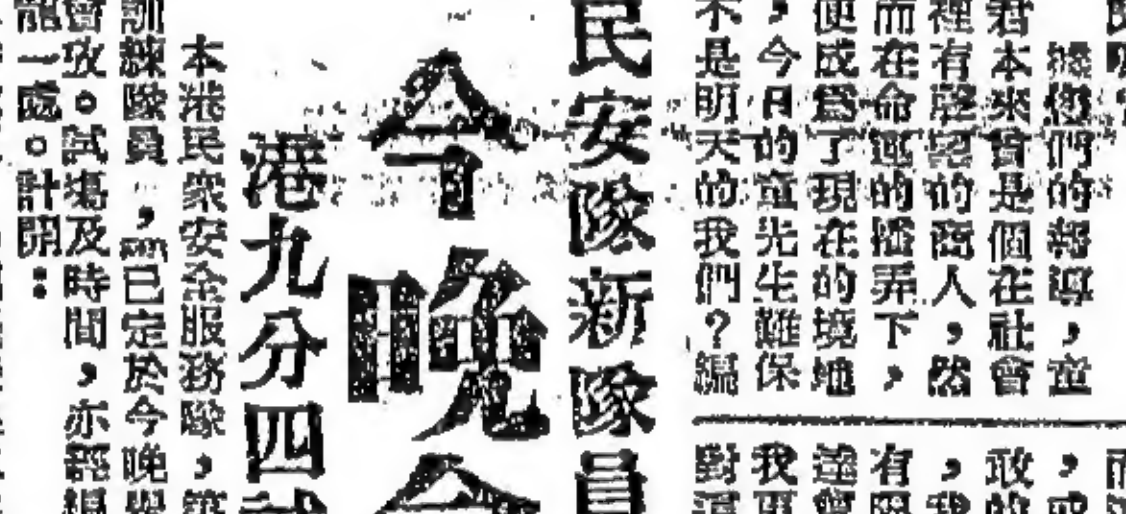 據您們的報導,童
君本來曾是個在社會
裡有聲的商人,然
而在命運的播弄下,
便成爲了現在的境地
,今日的童先生難保
不是明天的我們?編
,或
敢的
,我
有
我再
對
民安隊新隊員
今晚會
港九分四試
本港民衆安全服務隊,第
訓練隊員,已定於今晚舉
會攷。試塲及時間,亦經編
龍一處。計開: